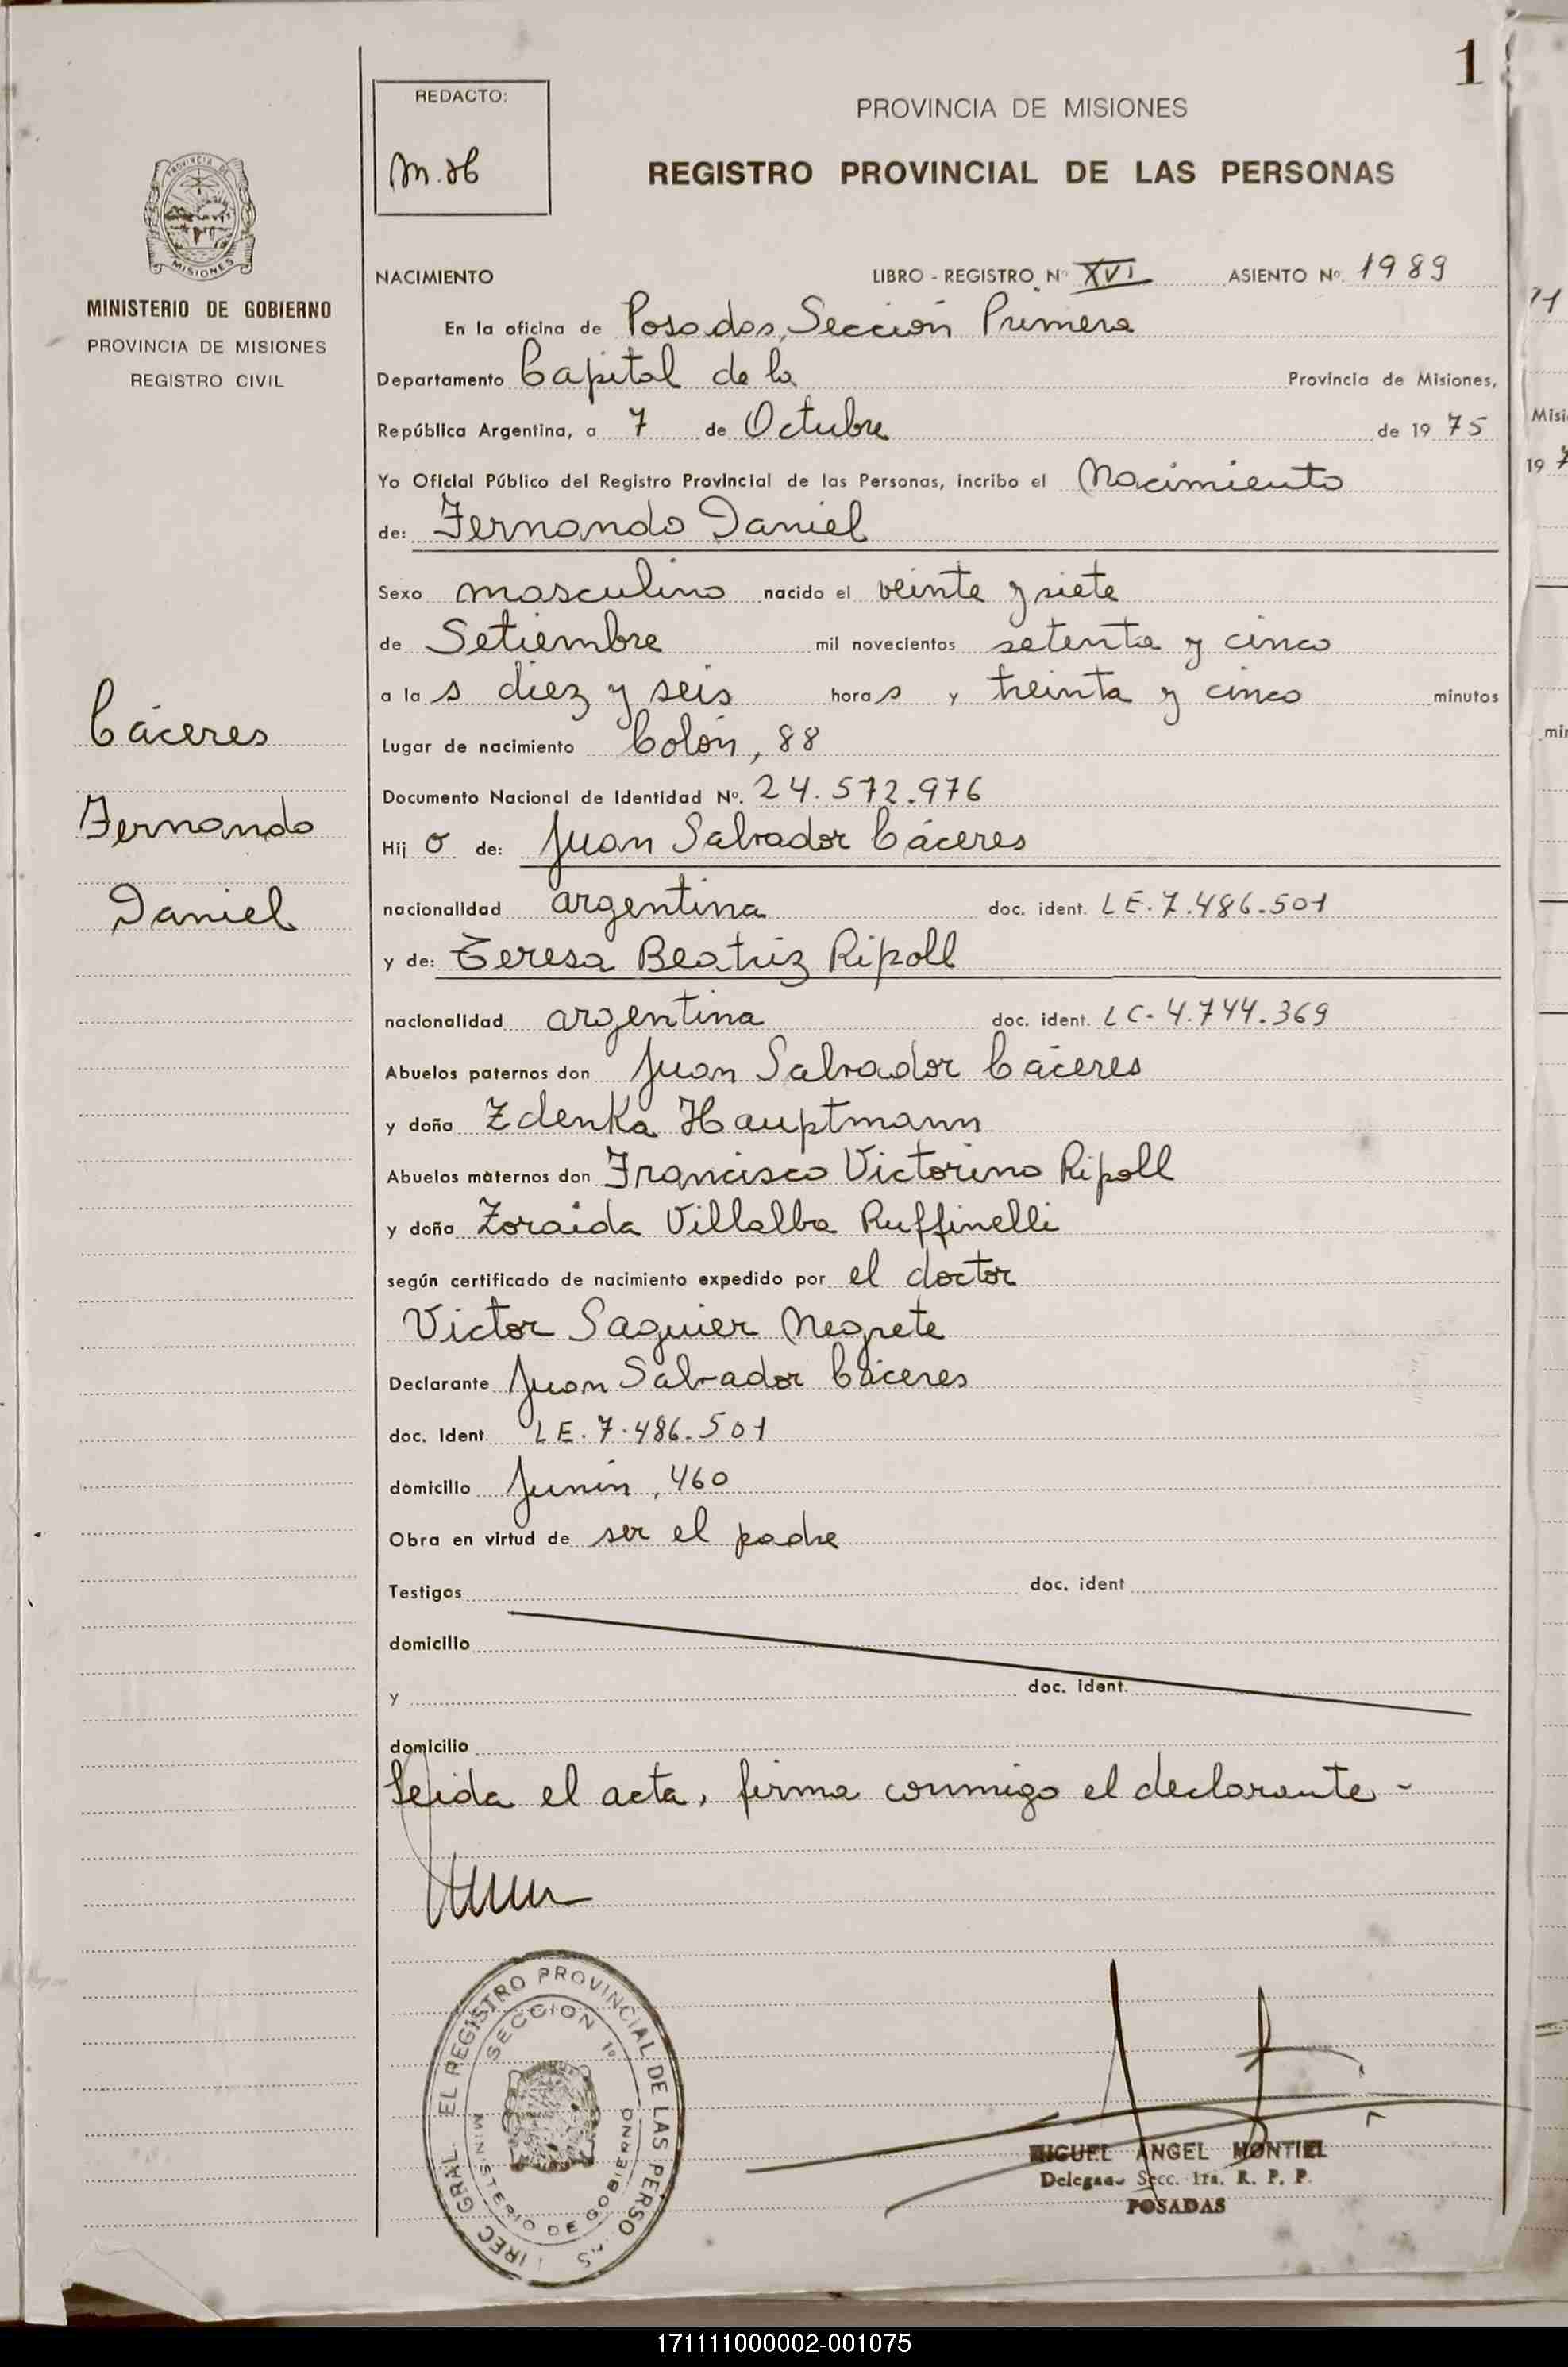 1
REDACTO:
M.H
PROVINCIA DE MISIONES
REGISTRO PROVINCIAL DE LAS PERSONAS
PROVINCIA DE
MISIONES
MINISTERIO DE GOBIERNO
PROVINCIA DE MISIONES
REGISTRO CIVIL
NACIMIENTO LIBRO - REGISTRO Nº XVI ASIENTO Nº 1989
En la oficina de Posadas, Sección Primera
Departamento Capital de la Provincia de Misiones,
República Argentina, a 7 de Octubre de 1975
Yo Oficial Público del Registro Provincial de las Personas, incribo el Nacimiento
de: Fernando Daniel
Sexo masculino nacido el veinte y siete
de Setiembre mil novecientos setenta y cinco
a las diez y seis horas y treinta y cinco minutos
Lugar de nacimiento Colón, 88
Documento Nacional de Identidad Nº. 24.572.976
Hijo de: Juan Salvador Cáceres
nacionalidad argentina doc. ident. LE. 7.486.501
y de: Teresa Beatriz Ripoll
nacionalidad argentina doc. ident. LC. 4.744.369
Abuelos paternos don Juan Salvador Cáceres
y doña Zdenka Hauptmann
Abuelos maternos don Francisco Victorino Ripoll
y doña Zoraida Villalba Ruffinelli
según certificado de nacimiento expedido por el doctor
Victor Saguier Negrete
Declarante Juan Salvador Cáceres
doc. Ident LE. 7.486.501
domicilio Junín, 460
Obra en virtud de ser el padre
Testigos doc. ident
domicilio
y doc. ident.
domicilio
Leída el acta, firma conmigo el declarante -
Cáceres
Fernando
Daniel
IREC GRAL. EL REGISTRO PROVINCIAL DE LAS PERSO AS
SECCION 1º
MINISTERIO DE GOBIERNO
MIGUEL ANGEL MONTIEL
Delegado Secc. 1ra. R. P. P.
POSADAS
Misi
19 7
mi
171111000002-001075